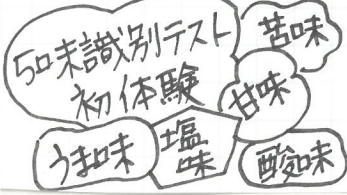 5味識別テスト
初体験
苦味
甘味
うま味
塩味
酸味